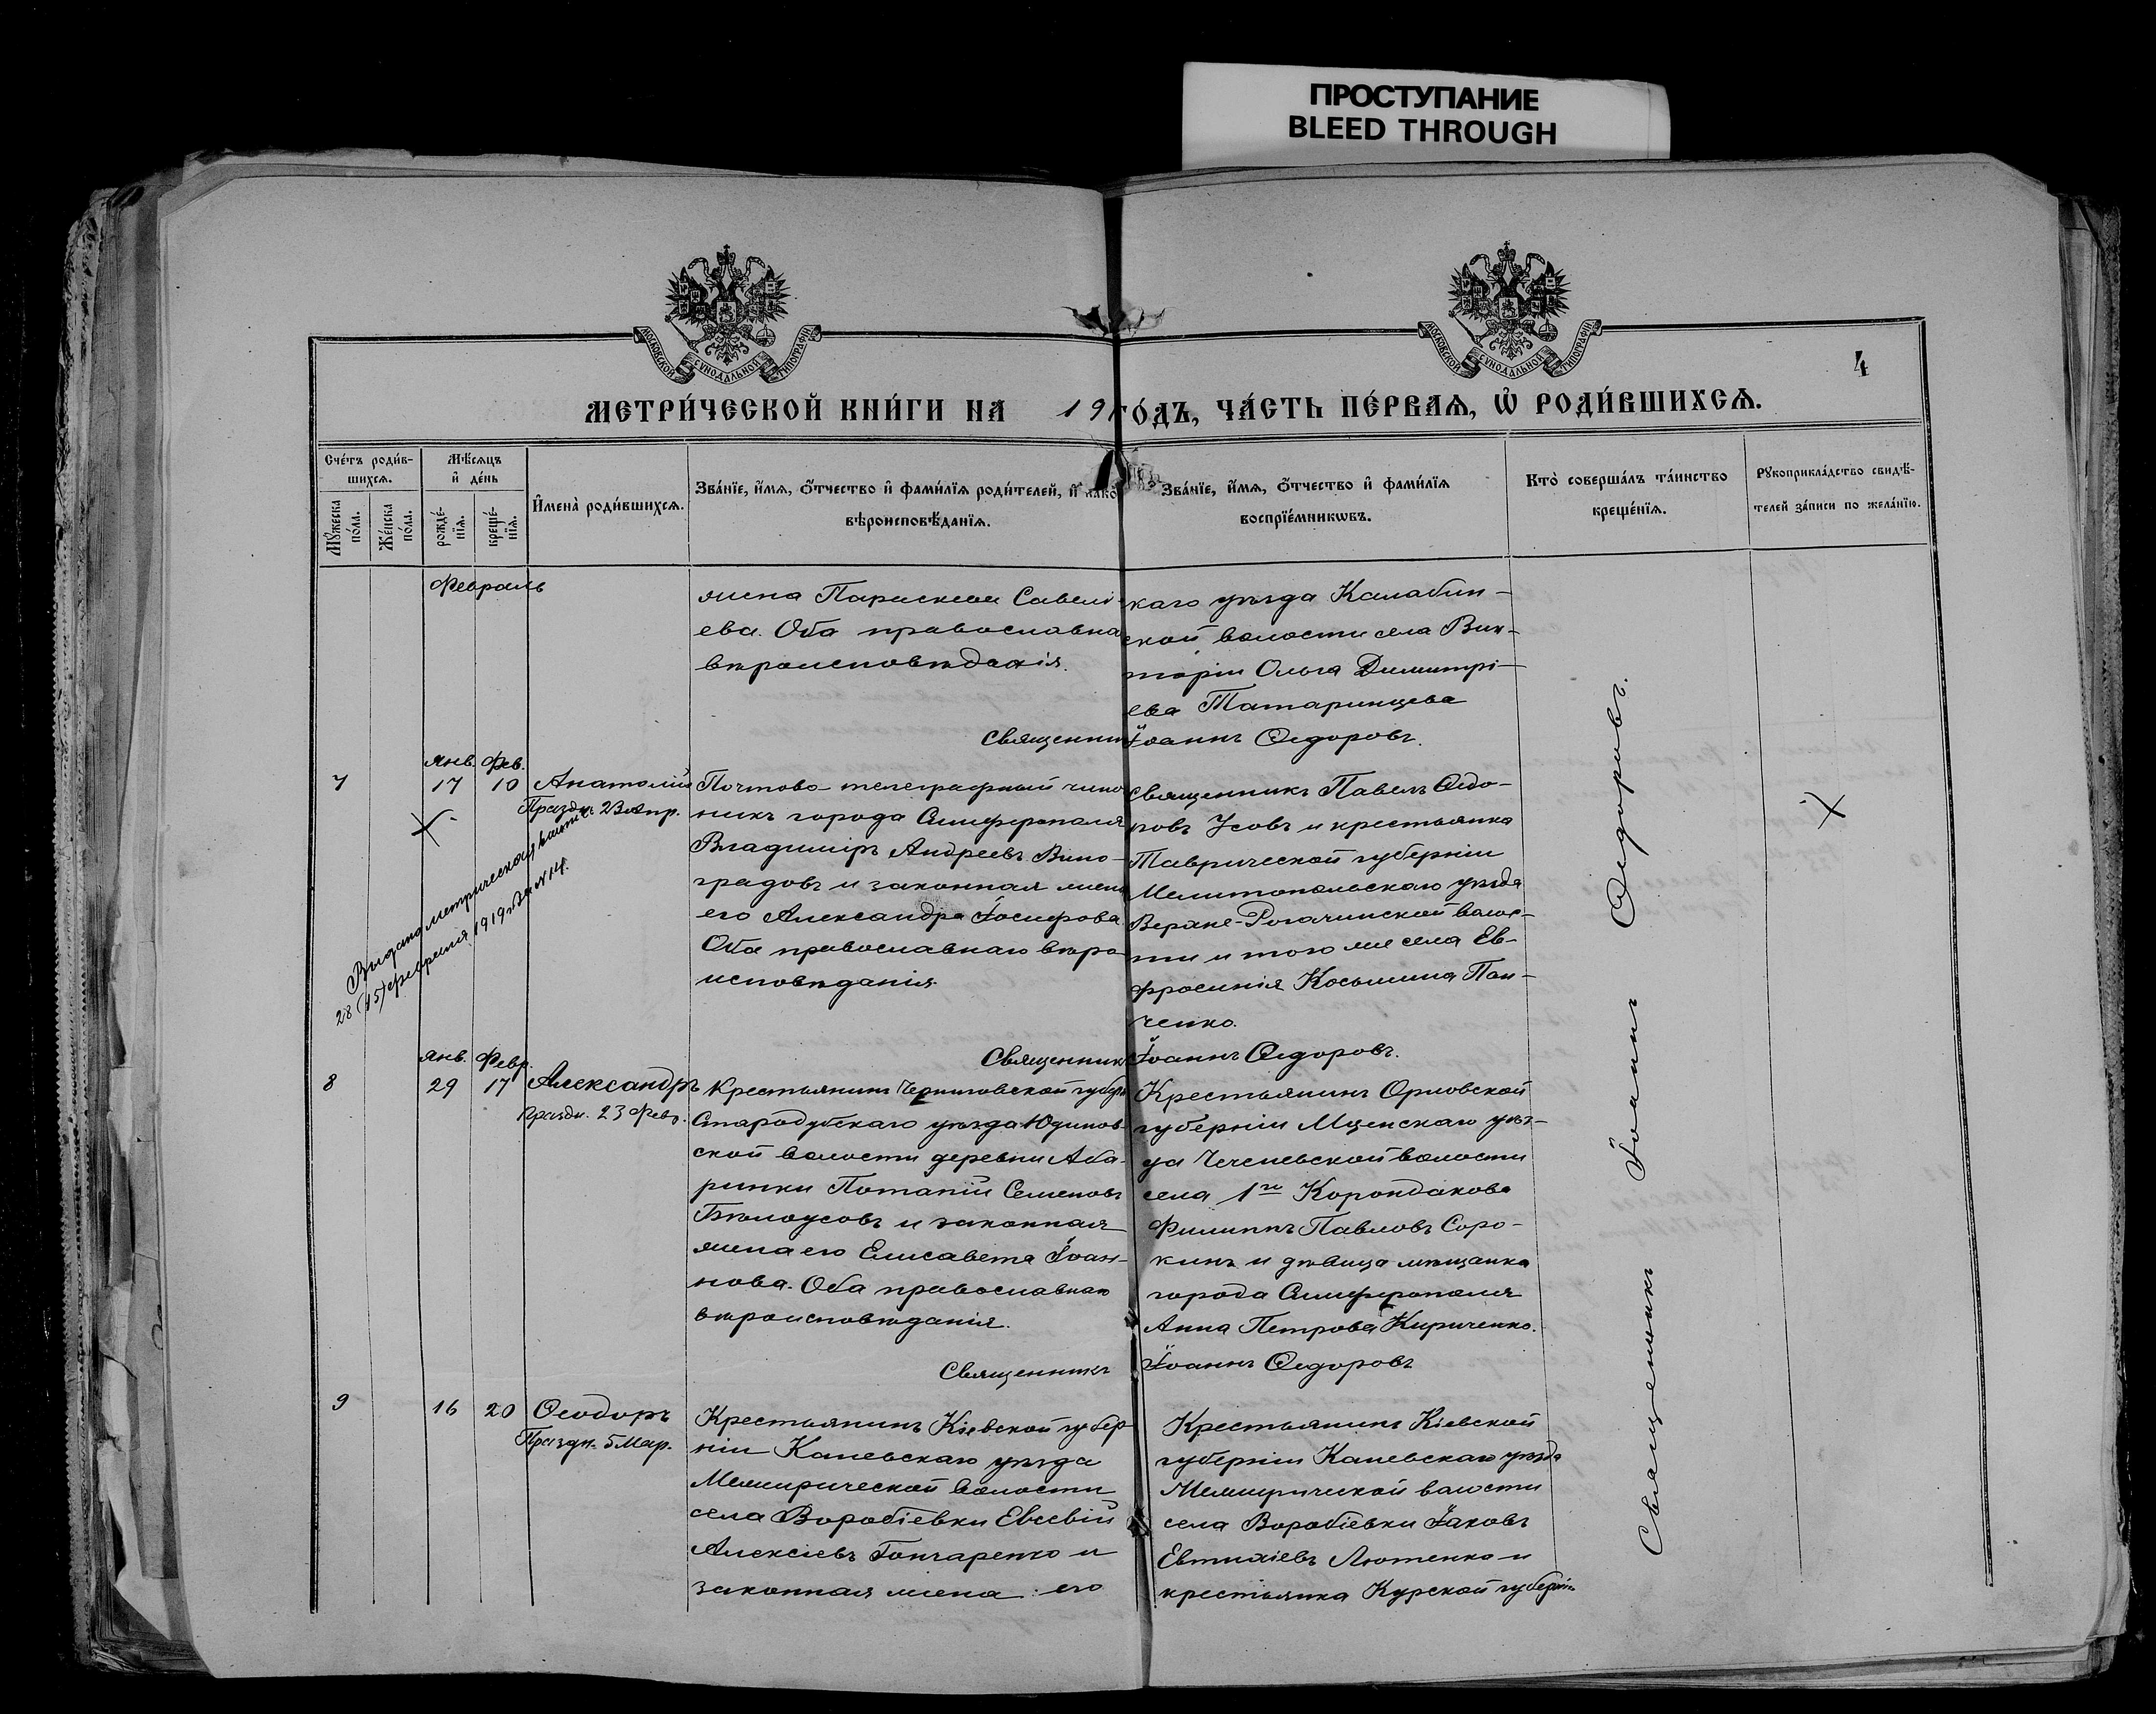 ПРОСТУПАНИЕ
BLEED THROUGH
МОСКОВСКОЙ СУНОДАЛЬНОЙ ТИПОГРАФІИ
МОСКОВСКОЙ СУНОДАЛЬНОЙ ТИПОГРАФІИ
4
МЕТРИ́ЧЕСКОЙ КНИ́ГИ НА 191 ГО́ДЪ, ЧА́СТЬ ПЕ́РВАѦ, Ѽ РОДИ́ВШИХСѦ.
Сче́тъ роди́в-
шихсѧ.
Мꙋ́жеска по́ла.
Же́нска по́ла.
Мѣ́сѧцъ и҆ де́нь
рожде́-нїѧ.
креще́-нїѧ.
И҆мена̀ роди́вшихсѧ.
Зва́нїе, и҆́мѧ, ѻ҆́тчество и҆ фами́лїѧ роди́телей, и҆ како́
вѣроисповѣ́данїѧ.
Зва́нїе, и҆́мѧ, ѻ҆́тчество и҆ фами́лїѧ
воспрїе́мникѡвъ.
Кто̀ соверша́лъ та́инство
креще́нїѧ.
Рꙋкоприкла́дство свидѣ́-
телей за́писи по жела́нїю.
Февраль
жена Параскева Савелі-
ева. Оба православна
вѣроисповѣданія.
каго уѣзда Калабин-
ской волости села Вик-
торіи Ольга Димитрі-
ева Татаринцева
Священник Іоаннъ Ѳедоровъ.
Янв. Фев.
7 17 10 Анатолій
Праздн. 23 Апр.
Выдано метрическая выпись
28 (15) февраля 1919 г. за № 14.
Почтово-телеграфный чинов
никъ города Симферополя
Владиміръ Андреевъ Вино-
градовъ и законная жена
его Александра Іосифова.
Оба православнаго вѣро
исповѣданія.
Священникъ Павелъ Ѳедо-
ровъ Усовъ и крестьянка
Таврической губерніи
Мелитопольскаго уѣзда
Верхне-Рогачинской волос-
ти и того же села Ев-
фросинія Косьмина Пан-
ченко.
Священник Іоаннъ Ѳедоровъ.
Янв. Февр.
8 29 17 Александръ
Праздн. 23 Февр.
Крестьянинъ Черниговской губер
Стародубскаго уѣзда Юдинов-
ской волости деревни Аба-
ринки Потапій Семеновъ
Бѣлоусовъ и законная
жена его Елисавета Іоан-
нова. Оба православнаго
вѣроисповѣданія.
Крестьянинъ Орловской
губерніи Мценскаго уѣз-
да Чегневской волости
села 1го Корондаково
Филиппъ Павловъ Соро-
кинъ и дѣвица мѣщанка
города Симферополя
Анна Петрова Кириченко.
Священникъ Іоаннъ Ѳедоровъ
9 16 20 Ѳеодоръ
Праздн. 5 Мар.
Крестьянинъ Кіевской губер-
ніи Каневскаго уѣзда
Межирической волости
села Воробіевки Евсевій
Алексіевъ Гончаренко и
законная жена его
Крестьянинъ Кіевской
губерніи Каневскаго уѣзда
Межирической волости
села Воробіевки Іаковъ
Евтихіевъ Лютенко и
крестьянка Курской губерніи
Священникъ Іоаннъ Ѳедоровъ.